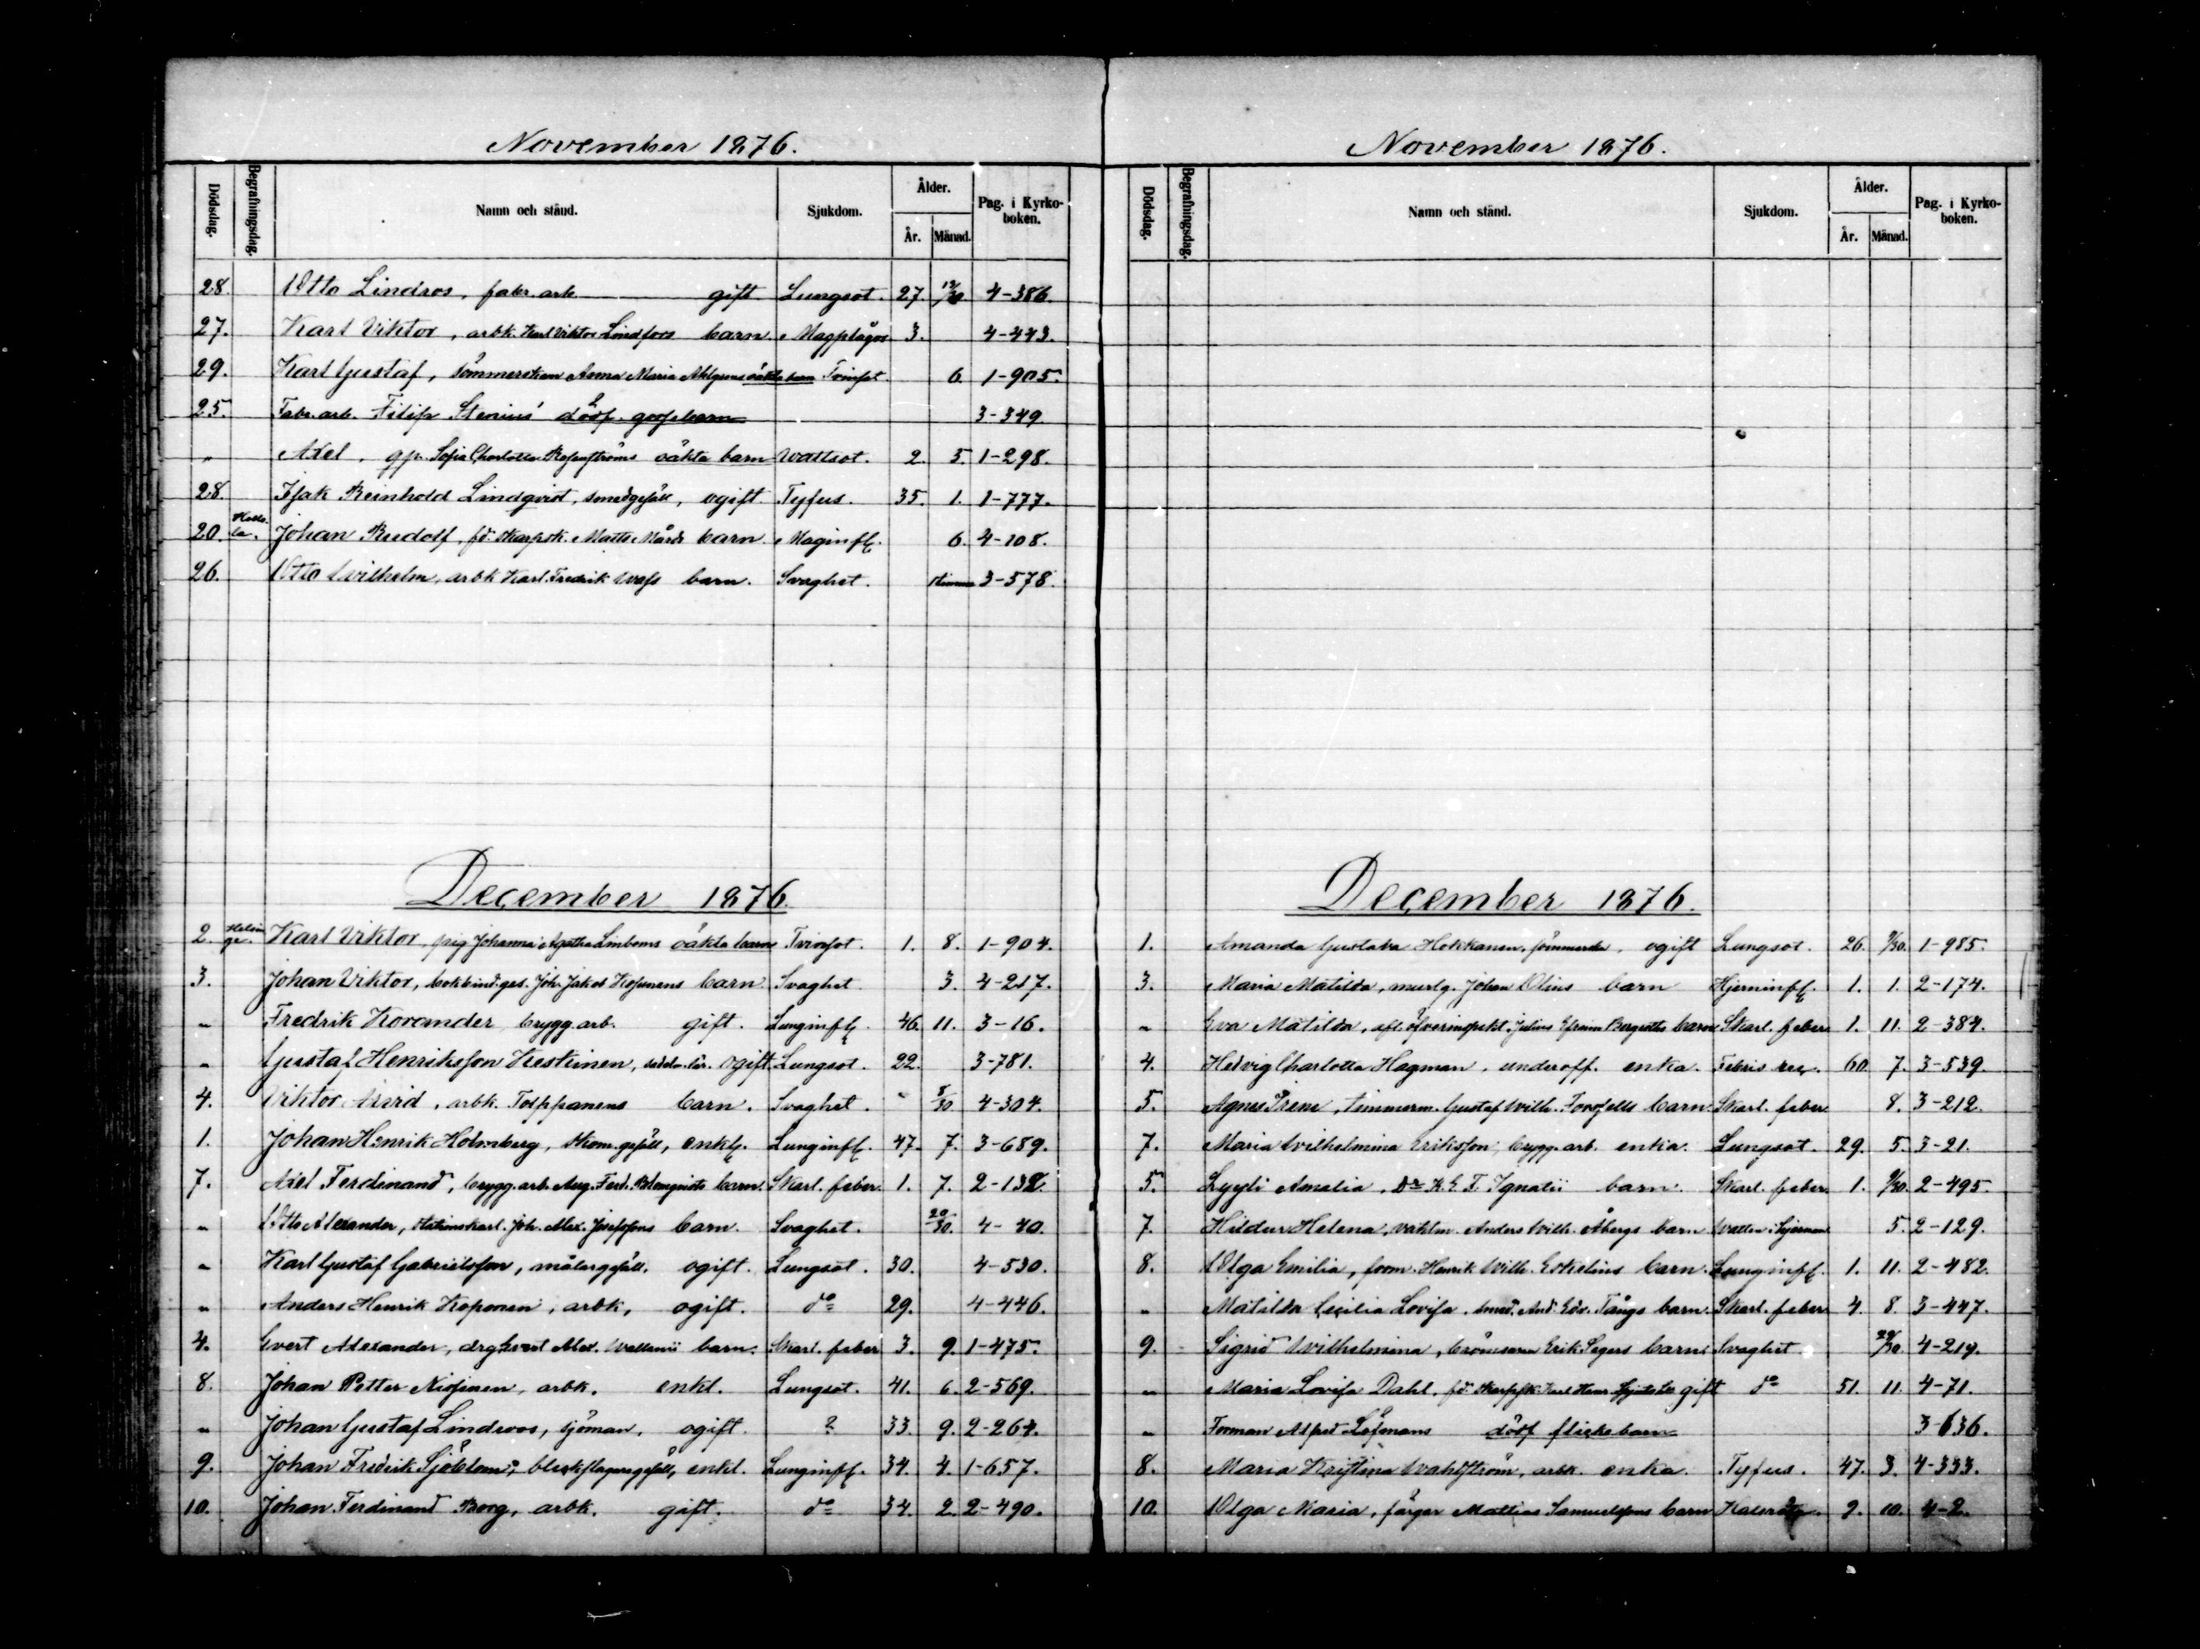 November 1876.
Dödsdag. Begrafningsdag. Namn och stånd. Sjukdom. Ålder. År. Månad. Pag. i Kyrko-boken.
28. Otto Lindros, fabr. arb. gift Lungsot. 27. 12/30. 4-386.
27. Karl Viktor, arbk. Karl Viktor Lindfors barn. Magplågor 3. 4-443.
29. Karl Gustaf, sömmerskan Anna Maria Ahlgrens oäkta barn Tvinsot. 6. 1-905.
25. Fabr. arb. Filip Stenius' dödf. gossebarn 3-349.
" Axel, gp. Sofia Charlotta Rosenströms oäkta barn Wattsot. 2. 5. 1-298.
28. Isak Reinhold Lindqvist, smedgesäll, ogift. Tyfus. 35. 1. 1-777.
20. Johan Rudolf, fd. skarpsk. Matts Mårds barn. Maginfl. 6. 4-108.
26. Otto Wilhelm, arbk Karl Fredrik Wass barn. Svaghet. timme 3-578.
December 1876.
2. Helsinge. Karl Viktor, pig. Johanna Agatha Linboms oäkta barn Tvinsot. 1. 8. 1-904.
3. Johan Viktor, bokbind. ges. Joh. Jakob Kosunens barn. Svaghet. 3. 4-217.
" Fredrik Korander, brygg. arb. gift. Lunginfl. 46. 11. 3-16.
" Gustaf Henriksson Kestinen, ogift. Lungsot. 22. 3-781.
4. Viktor Arvid, arbk. Torppanens barn. Svaghet. " 8/30 4-304.
1. Johan Henrik Holmberg, skom. gesäll, enkl. Lunginfl. 47. 7. 3-689.
7. Axel Ferdinand, brygg. arb. Aug. Ferd. Blomqvists barn. Skarl. feber. 1. 7. 2-132.
" Otto Alexander, stationskarl. Joh. Alex. Josefssons barn. Svaghet. 20/30. 4-40.
" Karl Gustaf Gabrielsson, målargesäll. ogift. Lungsot. 30. 4-530.
" Anders Henrik Koponen, arbk, ogift. do 29. 4-446.
4. Evert Alexander, drg Evert Alex. Wallenii barn. Skarl. feber 3. 9. 1-475.
8. Johan Petter Nissinen, arbk. enkl. Lungsot. 41. 6. 2-569.
" Johan Gustaf Lindroos, sjöman. ogift. ? 33. 9. 2-264.
9. Johan Fredrik Sjöblom, bleckslagaregesäll, enkl. Lunginfl. 34. 4. 1-657.
10. Johan Ferdinand Borg, arbk. gift. do 34. 2. 2-490.
November 1876.
Dödsdag. Begrafningsdag. Namn och stånd. Sjukdom. Ålder. År. Månad. Pag. i Kyrko-boken.
December 1876.
1. Amanda Gustava Hokkanen, sömmerska, ogift Lungsot. 26. 9/30. 1-985.
3. Maria Matilda, murlg. Johan Olins barn Hjerninfl. 1. 1. 2-174.
" Eva Matilda, afl. öfverinspekt. Julius Efraim Bergroths barn Skarl. feber 1. 11. 2-384.
4. Hedvig Charlotta Hagman, underoff. enka. Febris rec. 60. 7. 3-539.
5. Agnes Irene, timmerm. Gustaf Wilh. Forssells barn Skarl. feber 8. 3-212.
7. Maria Wilhelmina Eriksson, brygg. arb. enka. Lungsot. 29. 5. 3-21.
5. Lyyli Amalia, Dr K. E. F. Ignatii barn. Skarl. feber. 1. 9/30. 2-495.
7. Hildur Helena, vaktm. Anders Wilh. Åbergs barn Watten i hjernan 5. 2-129.
8. Olga Emilia, form. Henrik Wilh. Eskelins barn. Lunginfl. 1. 11. 2-482.
" Matilda Cecilia Lovisa, smed. And. Edv. Tångs barn. Skarl. feber 4. 8. 3-447.
9. Sigrid Wilhelmina, Erik Segers barn Svaghet 29/30. 4-219.
" Maria Lovisa Dahl, fd. skarpsk. Karl Henr. gift do 51. 11. 4-71.
" Forman Alfred Löfmans dödf. flickebarn 3-636.
8. Maria Kristina Wahlström, arbk. enka. Tyfus. 47. 3. 4-333.
10. Olga Maria, färgar Mattias Samuelssons barn 2. 10. 4-2.